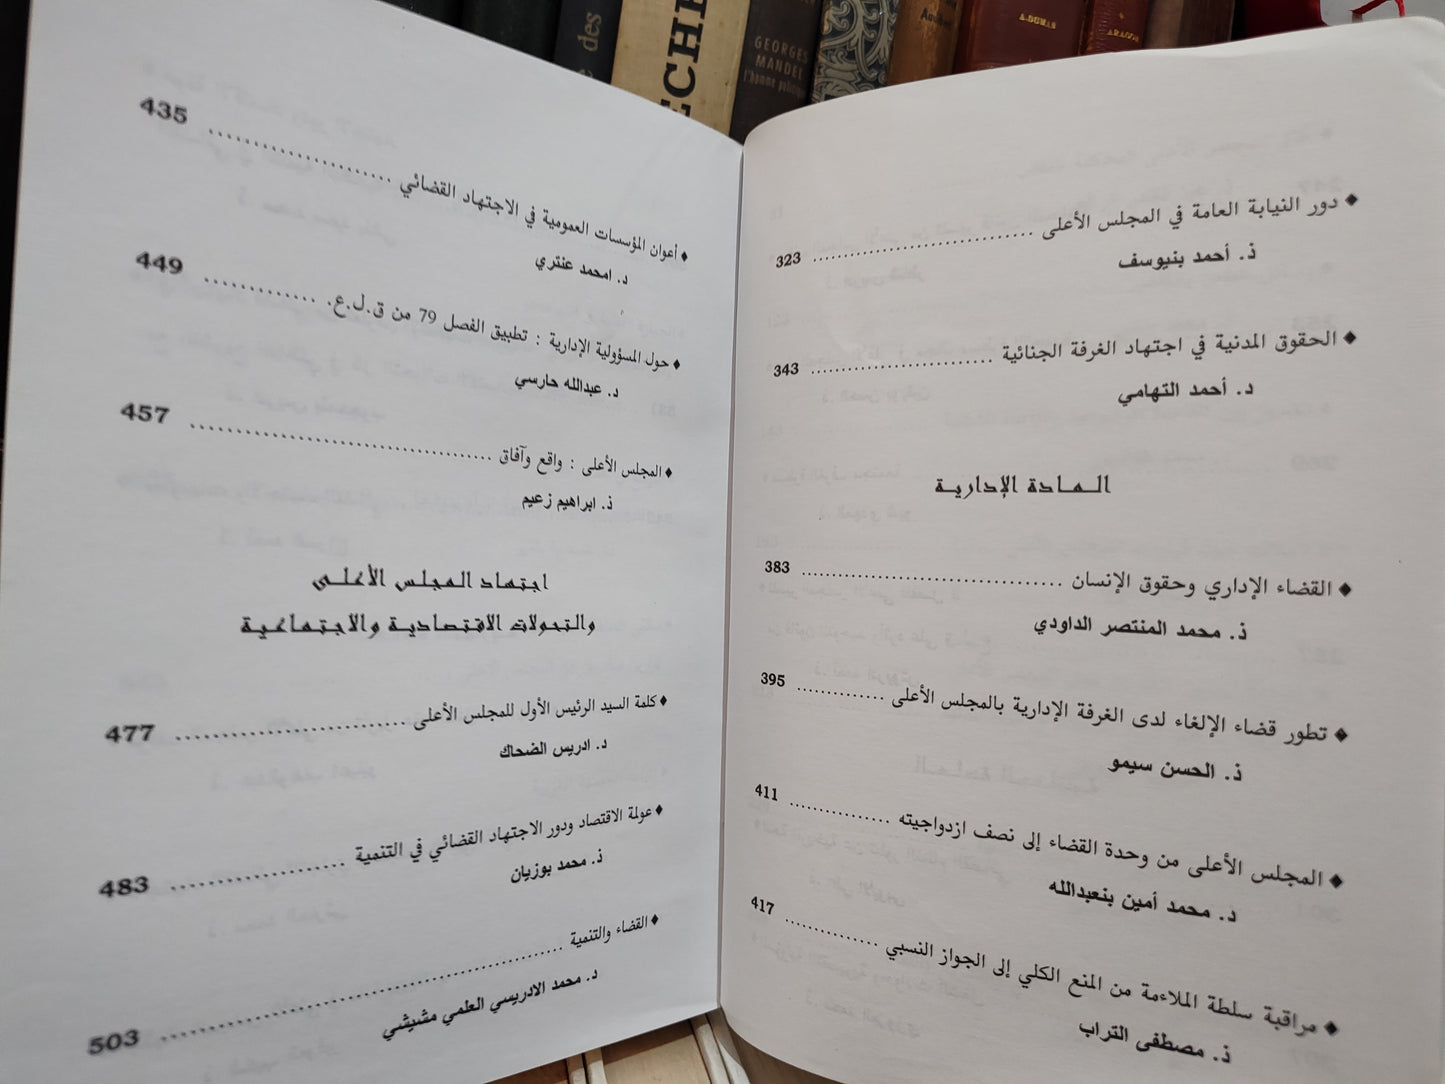 des
ECHE
GEORGES
MANDEL
l'homme politique
A. DUMAS
ARAGON
◆ دور النيابة العامة في المجلس الأعلى ........ 323
ذ. أحمد بنيوسف
◆ الحقوق المدنية في اجتهاد الغرفة الجنائية ........ 343
د. أحمد التهامي
المادة الإدارية
◆ القضاء الإداري وحقوق الإنسان ........ 383
ذ. محمد المنتصر الداودي
◆ تطور قضاء الإلغاء لدى الغرفة الإدارية بالمجلس الأعلى ........ 395
ذ. الحسن سيمو
◆ المجلس الأعلى من وحدة القضاء إلى نصف ازدواجيته ........ 411
د. محمد أمين بنعبدالله
◆ مراقبة سلطة الملاءمة من المنع الكلي إلى الجواز النسبي ........ 417
ذ. مصطفى التراب
◆ أعوان المؤسسات العمومية في الاجتهاد القضائي ........ 435
د. امحمد عنتري
◆ حول المسؤولية الإدارية : تطبيق الفصل 79 من ق.ل.ع. ........ 449
د. عبدالله حارسي
◆ المجلس الأعلى : واقع وآفاق ........ 457
ذ. ابراهيم زعيم
اجتهاد المجلس الأعلى
والتحولات الاقتصادية والاجتماعية
◆ كلمة السيد الرئيس الأول للمجلس الأعلى ........ 477
د. ادريس الضحاك
◆ عولمة الاقتصاد ودور الاجتهاد القضائي في التنمية ........ 483
ذ. محمد بوزيان
◆ القضاء والتنمية ........ 503
د. محمد الادريسي العلمي مشيشي